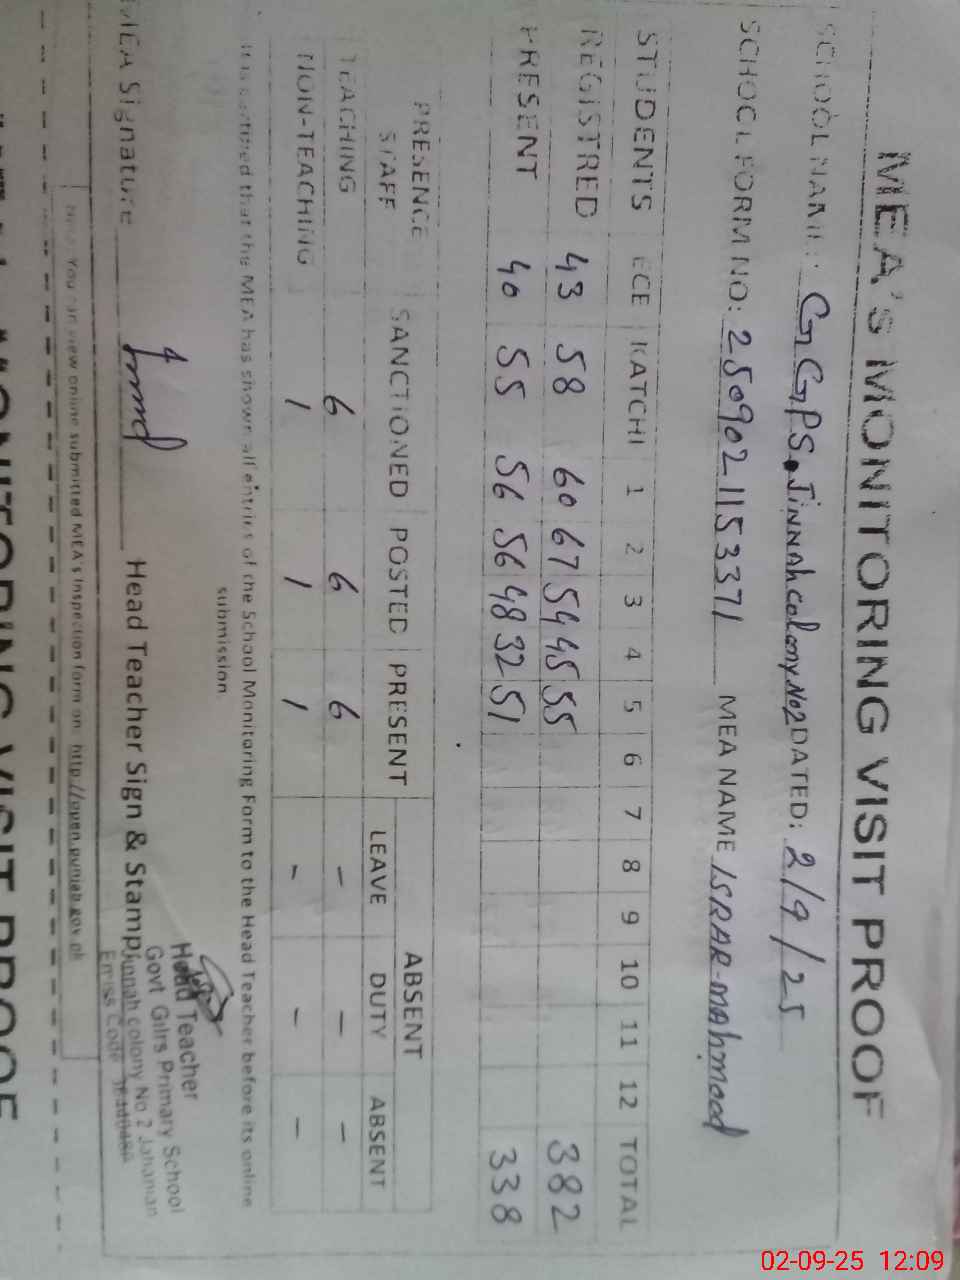 MEA'S MONITORING VISIT PROOF
SCHOOL NAME: GGPS. Jinnah colony No2 DATED: 2/9/25
SCHOOL FORM NO: 25090211 53371 MEA NAME ISRAR-MAhmood
STUDENTS ECE KATCHI 1 2 3 4 5 6 7 8 9 10 11 12 TOTAL
REGISTRED 43 58 60 67 54 45 55 382
PRESENT 40 55 56 56 48 32 51 338
PRESENCE ABSENT
STAFF SANCTIONED POSTED PRESENT LEAVE DUTY ABSENT
TEACHING 6 6 6 - - -
NON-TEACHING 1 1 1 - - -
It is certified that the MEA has shown all entries of the School Monitoring Form to the Head Teacher before its online
submission.
Head Teacher
Govt Gilrs Primary School
MEA Signature Head Teacher Sign & Stamp Jinnah colony No 2 Jahanian
Emiss Code
Note: You can view online submitted MEA's Inspection form on: http://open.punjab.gov.pk
MONITORING VISIT PROOF
02-09-25 12:09